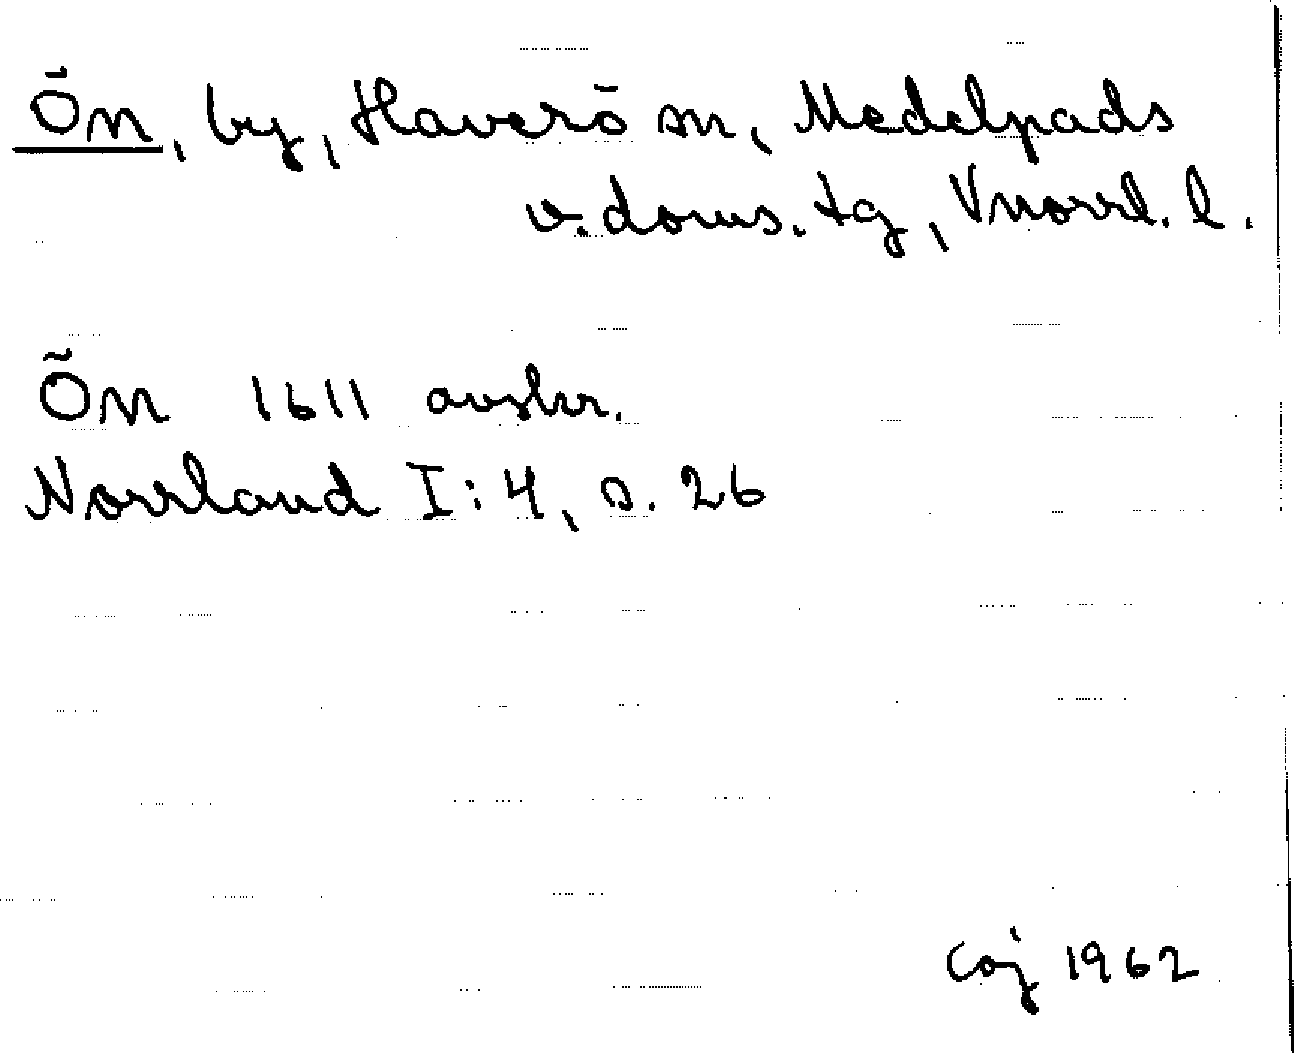 Ön, by, Haverö sn, Medelpads
v. doms. tg, Vnorrl. l.
Ön 1611 avskr.
Norrland I:4, s. 26
Coj 1962